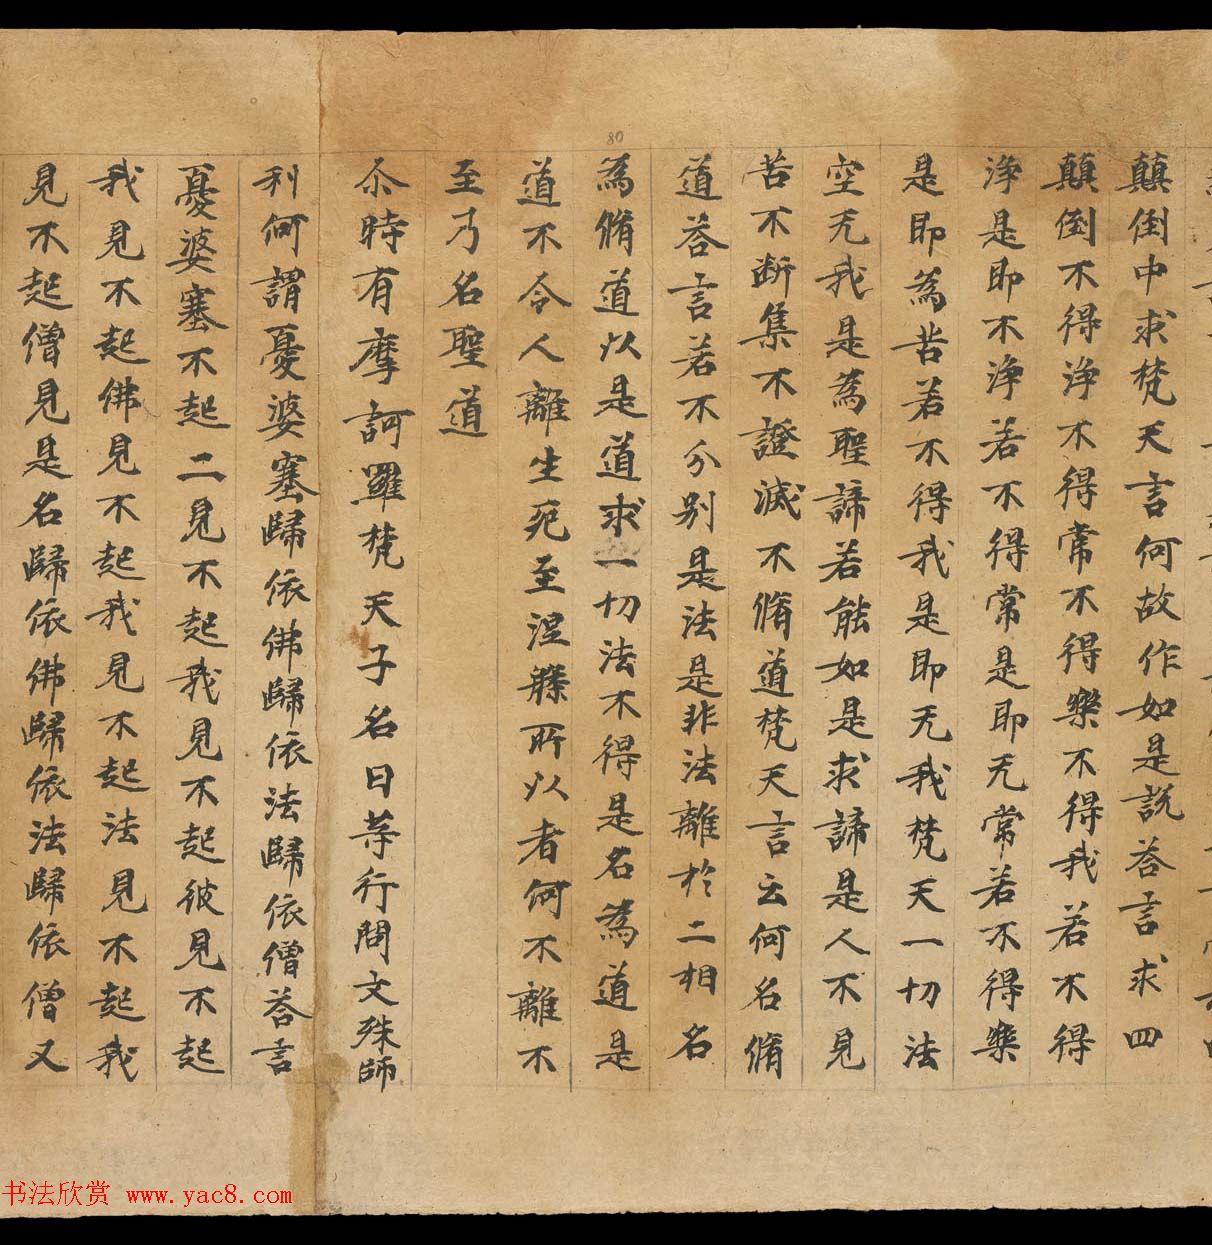 顛倒中求梵天言何故作如是說荅言求四
顛倒不得淨不得常不得樂不得我若不得
淨是即不淨若不得常是即无常若不得樂
是即為苦若不得我是即无我梵天一切法
空无我是為聖諦若能如是求諦是人不見
苦不斷集不證滅不脩道梵天言云何名脩
道荅言若不分別是法是非法離於二相名
為脩道以是道求一切法不得是名為道是
道不令人離生死至涅槃所以者何不離不
至乃名聖道
尒時有摩訶羅梵天子名曰等行問文殊師
利何謂憂婆塞歸依佛歸依法歸依僧荅言
憂婆塞不起二見不起我見不起彼見不起
我見不起佛見不起我見不起法見不起我
見不起僧見是名歸依佛歸依法歸依僧又
80
书法欣赏 www.yac8.com